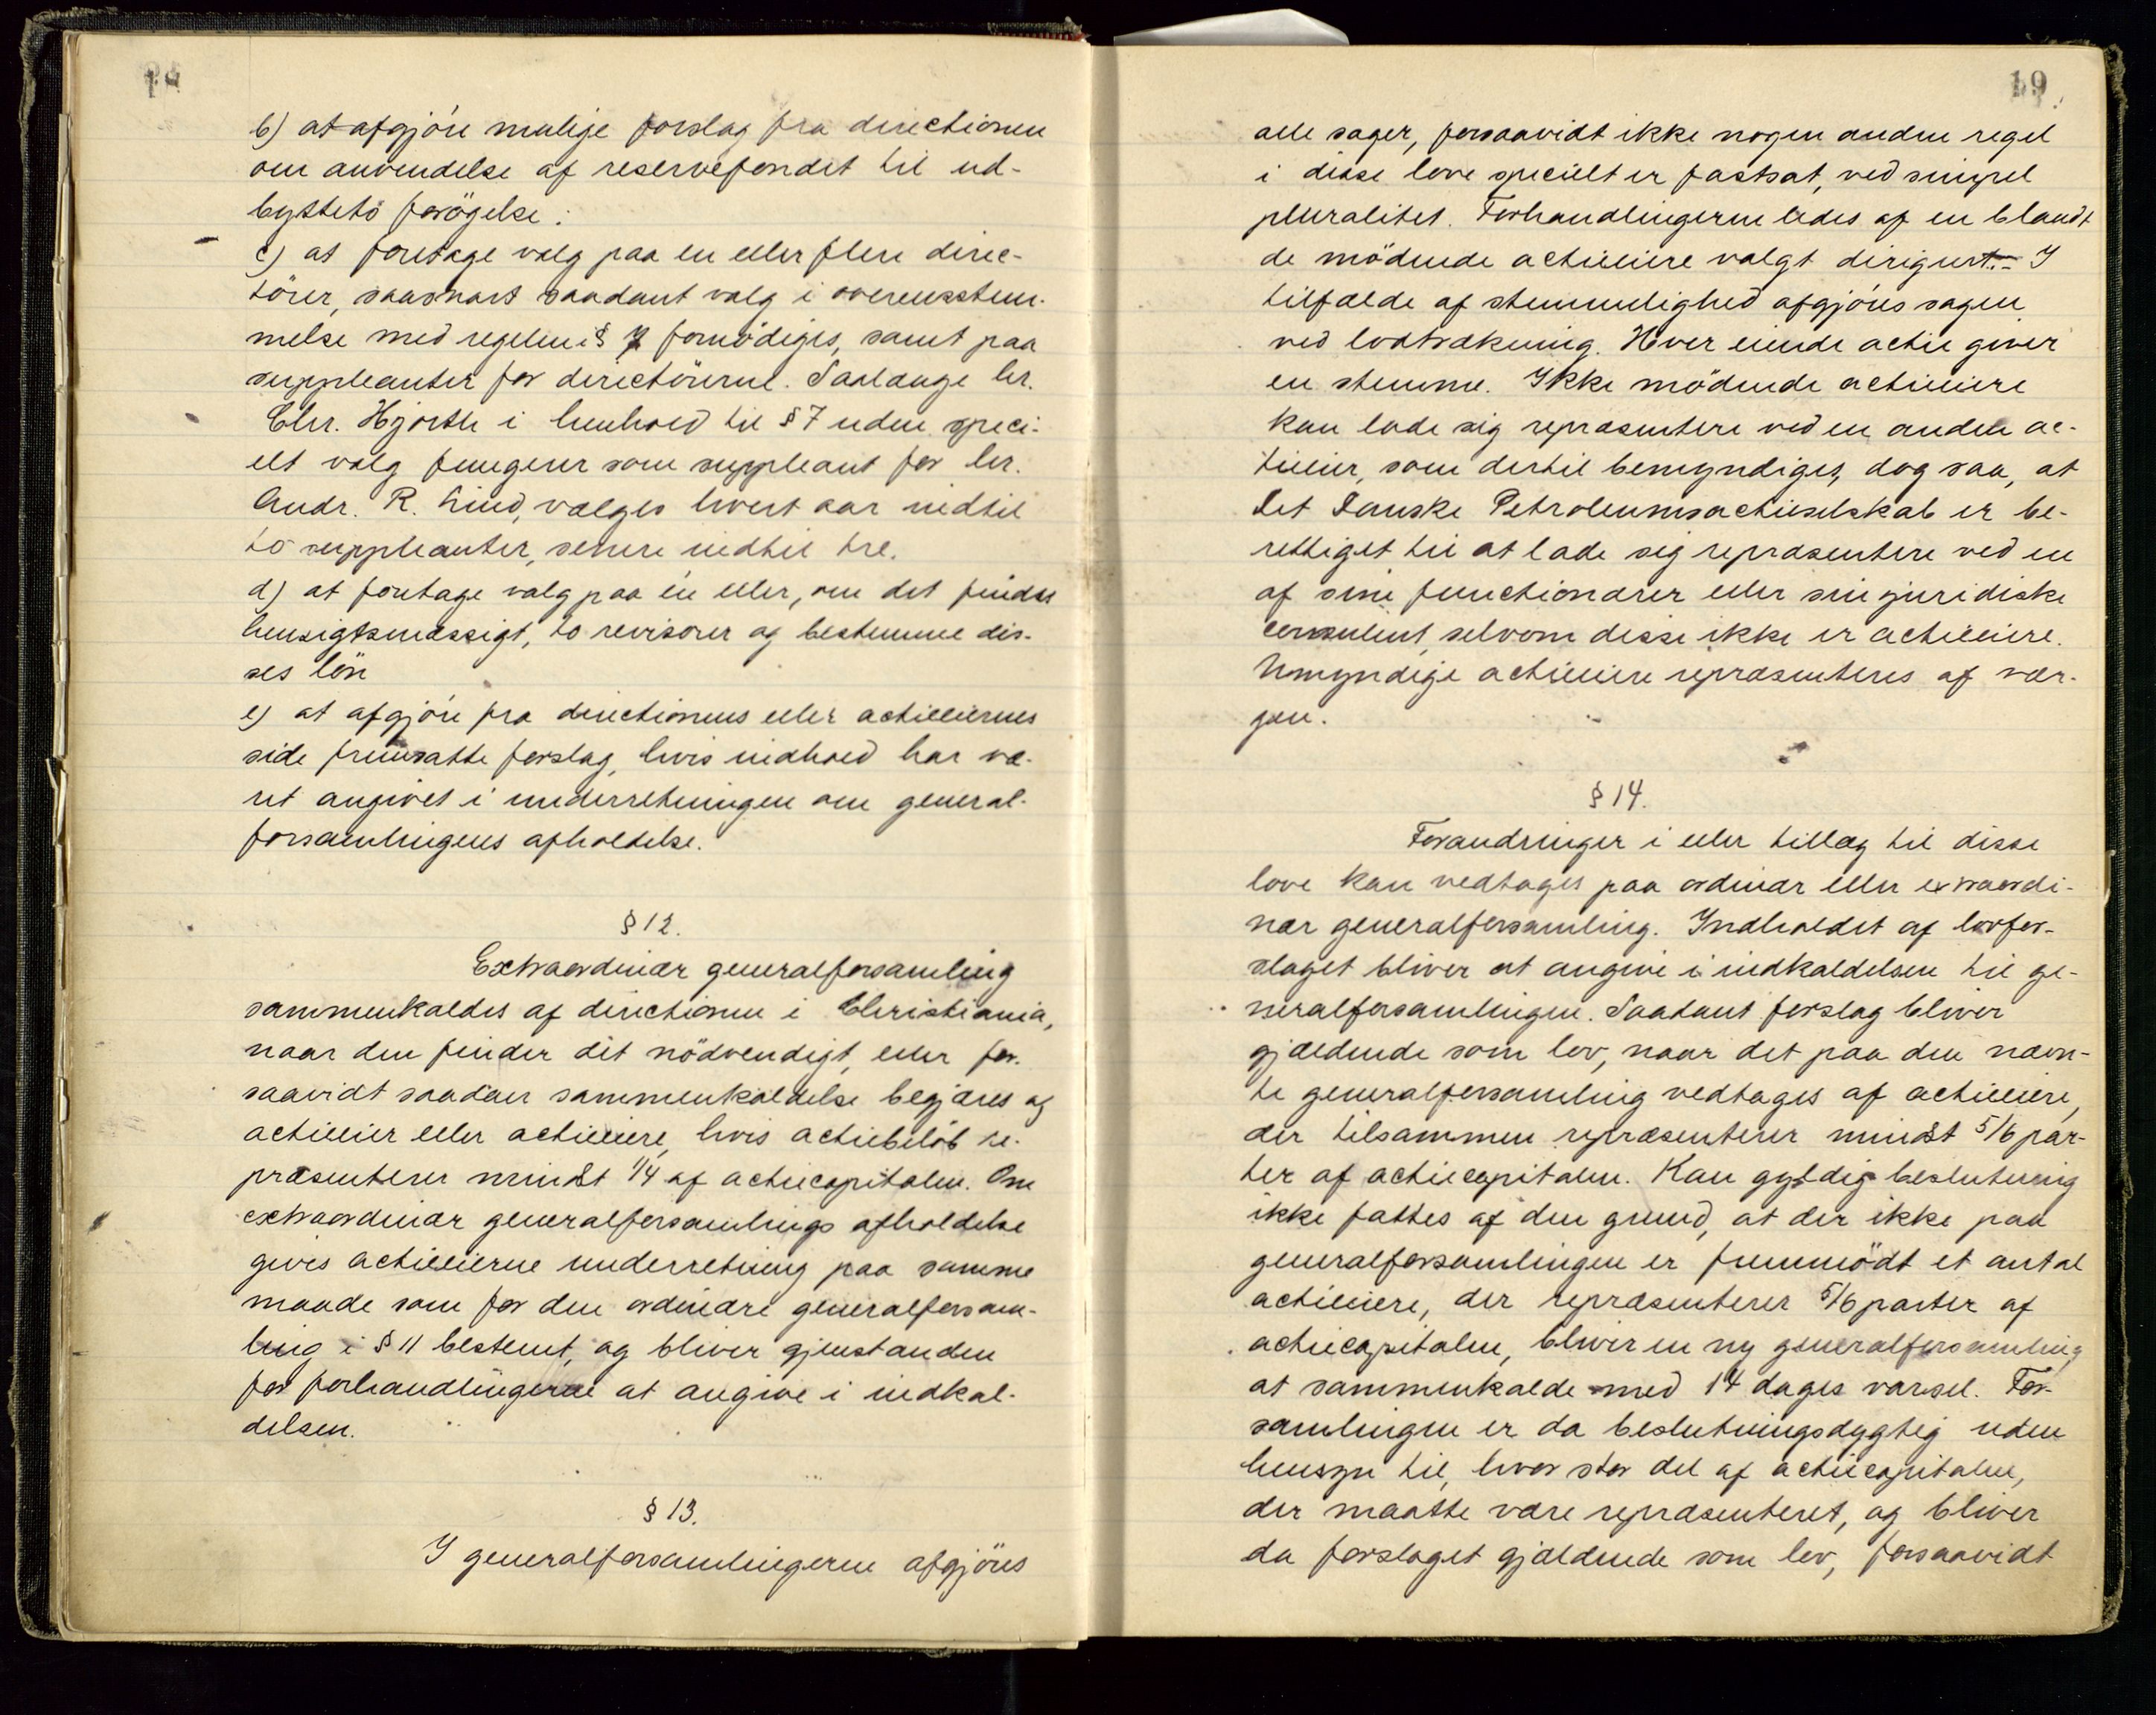 b) at afgjöre mulige forslag fra directionen
om anvendelse af reservefondet til ud-
byttets forögelse.
c) at foretage valg paa en eller flere direc-
törer, saasnart saadant valg i overensstem-
melse med regelen i § 7 fornödiges, samt paa
suppleanter for directörerne. Saalænge hr.
Chr. Hjorth i henhold til § 7 uden speci-
elt valg fungerer som suppleant for hr.
Andr. R. Lind, vælges hvert aar indtil
to suppleanter, senere indtil tre.
d) at foretage valg paa én eller, om det findes
hensigtsmæssigt, to revisorer og bestemme dis-
ses lön
e) at afgjöre fra directionens eller actieeiernes
side fremsatte forslag, hvis indhold har væ-
ret angivet i underretningen om general-
forsamlingens afholdelse.
§ 12.
Extraordinær generalforsamling
sammenkaldes af directionen i Christiania,
naar den finder det nödvendigt, eller for-
saavidt saadan sammenkaldelse begjæres af
actieeier eller actieeiere, hvis actiebelöb re-
præsenterer mindst 1/4 af actiecapitalen. Om
extraordinær generalforsamlings afholdelse
gives actieeierne underretning paa samme
maade som for den ordinære generalforsam-
ling i § 11 bestemt, og bliver gjenstanden
for forhandlingerne at angive i indkal-
delsen.
§ 13.
I generalforsamlingerne afgjöres
19
alle sager, forsaavidt ikke nogen anden regel
i disse love specielt er fastsat, ved simpel
pluralitet. Forhandlingerne ledes af en blandt
de mödende actieeiere valgt dirigent. I
tilfælde af stemmelighed afgjöres sagen
ved lodtrækning. Hver eiende actie giver
en stemme. Ikke mödende actieeiere
kan lade sig repræsentere ved en anden ac-
tieeier, som dertil bemyndiges, dog saa, at
Det Danske Petroleumsactieselskab er be-
rettiget til at lade sig repræsentere ved en
af sine functionærer eller sin juridiske
consulent, selvom disse ikke er actieeiere.
Umyndige actieeiere repræsenteres af vær-
gen.
§ 14.
Forandringer i eller tillæg til disse
love kan vedtages paa ordinær eller extraordi-
nær generalforsamling. Indholdet af lovfor-
slaget bliver at angive i indkaldelsen til ge-
neralforsamlingen. Saadant forslag bliver
gjældende som lov, naar det paa den nævn-
te generalforsamling vedtages af actieeiere,
der tilsammen repræsenterer mindst 5/6 par-
ter af actiecapitalen. Kan gyldig beslutning
ikke fattes af den grund, at der ikke paa
generalforsamlingen er fremmödt et antal
actieeiere, der repræsenterer 5/6 parter af
actiecapitalen, bliver en ny generalforsamling
at sammenkalde med 14 dages varsel. For-
samlingen er da beslutningsdygtig uden
hensyn til, hvor stor del af actiecapitalen,
der maatte være repræsenteret, og bliver
da forslaget gjældende som lov, forsaavidt